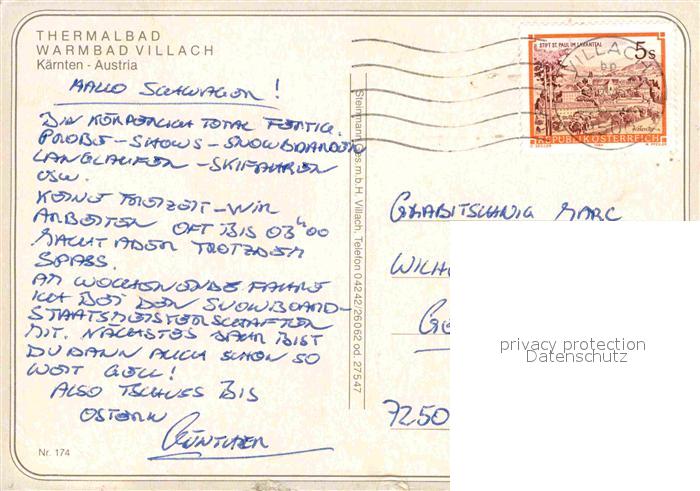 THERMALBAD
WARMBAD VILLACH
Kärnten - Austria
HALLO SCHWAGER!
BIN KÖRPERLICH TOTAL FERTIG.
PROBE-SHOWS-SNOWBOARDEN
LANGLAUFEN-SKIFAHREN
USW.
KEINE FREIZEIT-WIR
ARBEITEN OFT BIS 03 h 00
MACHT ABER TROTZDEM
SPASS.
AM WOCHENENDE FAHRE
ICH BEI DEN SNOWBOARD-
STAATSMEISTERSCHAFTEN
MIT. NÄCHSTES JAHR BIST
DU DANN AUCH SCHON SO
WEIT GELL!
ALSO TSCHUSS BIS
OSTERN
GÜNTHER
Nr. 174
Steinmann Ges.m.b.H. Villach, Telefon 04242/26062 od. 27547
STIFT ST. PAUL IM LAVANTTAL
5s
REPUBLIK ÖSTERREICH
VILLACH
GRABITSCHNIG MARC
7250
privacy protection
Datenschutz